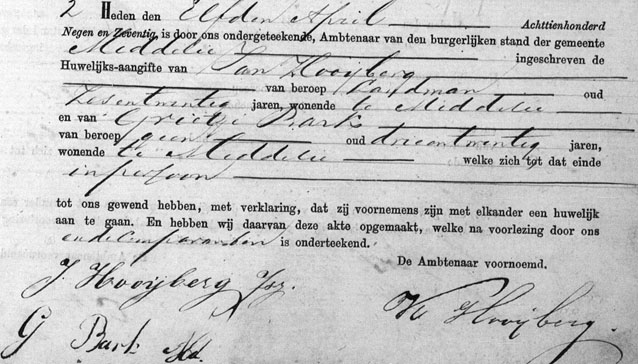 2 Heden den Elfden April Achttienhonderd
Negen en Zeventig, is door ons ondergeteekende, Ambtenaar van den burgerlijken stand der gemeente
Middelie ingeschreven de
Huwelijks-aangifte van Jan Hooijberg
van beroep Landman oud
Zesentwintig jaren, wonende te Middelie
en van Grietje Bark
van beroep geen oud drieentwintig jaren,
wonende te Middelie welke zich tot dat einde
in persoon
tot ons gewend hebben, met verklaring, dat zij voornemens zijn met elkander een huwelijk
aan te gaan. En hebben wij daarvan deze akte opgemaakt, welke na voorlezing door ons
en de Comparanten is onderteekend.
De Ambtenaar voornoemd.
J. Hooijberg Jz.
Hooijberg.
G Bark